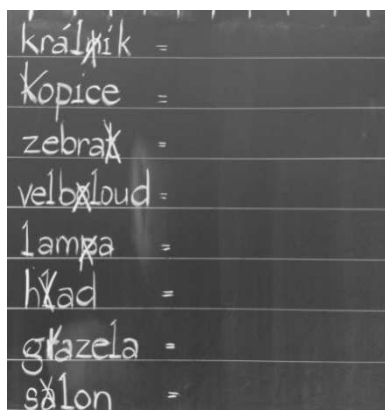 králník =
kopice =
zebrak =
velbaloud =
lampa =
hlad =
grazela =
salon =